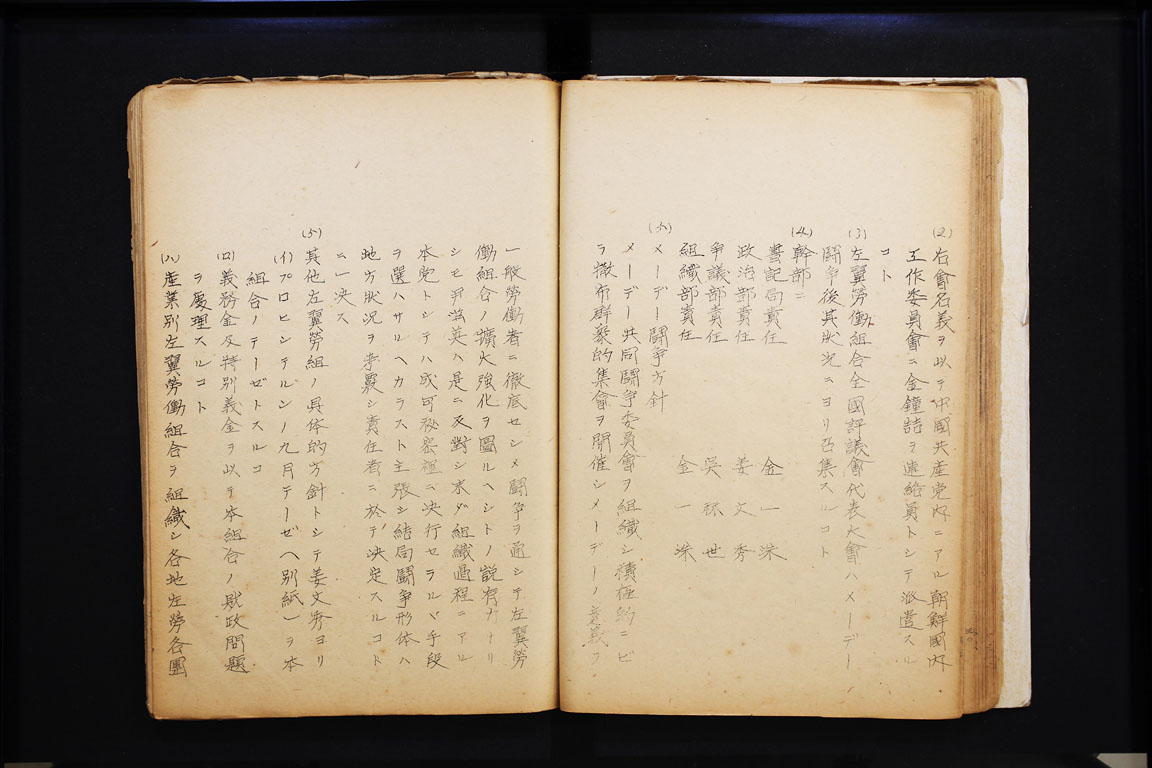 (2) 右會名義ヲ以テ中國共産党内ニアル朝鮮國内
工作委員會ニ金鐘喆ヲ連絡員トシテ派遣スル
コト
(3) 左翼勞働組合全國評議會代表大會ハメーデー
鬪争後其狀況ニヨリ召集スルコト
(4) 幹部ニ
書記局責任 金一洙
政治部責任 姜文秀
争議部責任 吳 世
組織部責任 金一洙
(5) メーデー鬪争方針
メーデー共同鬪争委員會ヲ組織シ積極的ニビ
ラ撒布群衆的集會ヲ開催シメーデーノ意義ヲ
一般勞働者ニ徹底セシメ鬪争ヲ通シテ左翼勞
働組合ノ擴大強化ヲ圖ルヘシトノ説有力ナリ
シモ尹 英ハ是ニ反對シ未ダ組織過程ニアル
本党トシテハ成可秘密裡ニ決行セラルヾ手段
ヲ選ハサルヘカラスト主張シ結局鬪争形体ハ
地方狀況ヲ考覈シ責任者ニ於テ決定スルコト
ニ一決ス
(5) 其他左翼勞組ノ具体的方針トシテ姜文秀ヨリ
(イ) プロヒンテルンノ九月テーゼヘ別紙一ヲ本
組合ノテーゼトスルコ
(ロ) 義務金及特別義金ヲ以テ本組合ノ財政問題
ヲ處理スルコト
(ハ) 産業別左翼勞働組合ヲ組織シ各地左勞各團